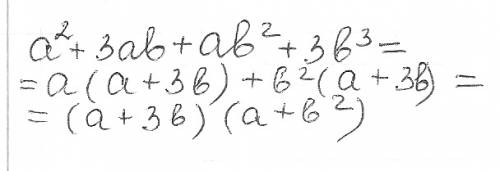 a² + 3ab + ab² + 3b³ =
= a (a + 3b) + b² (a + 3b) =
= (a + 3b) (a + b²)